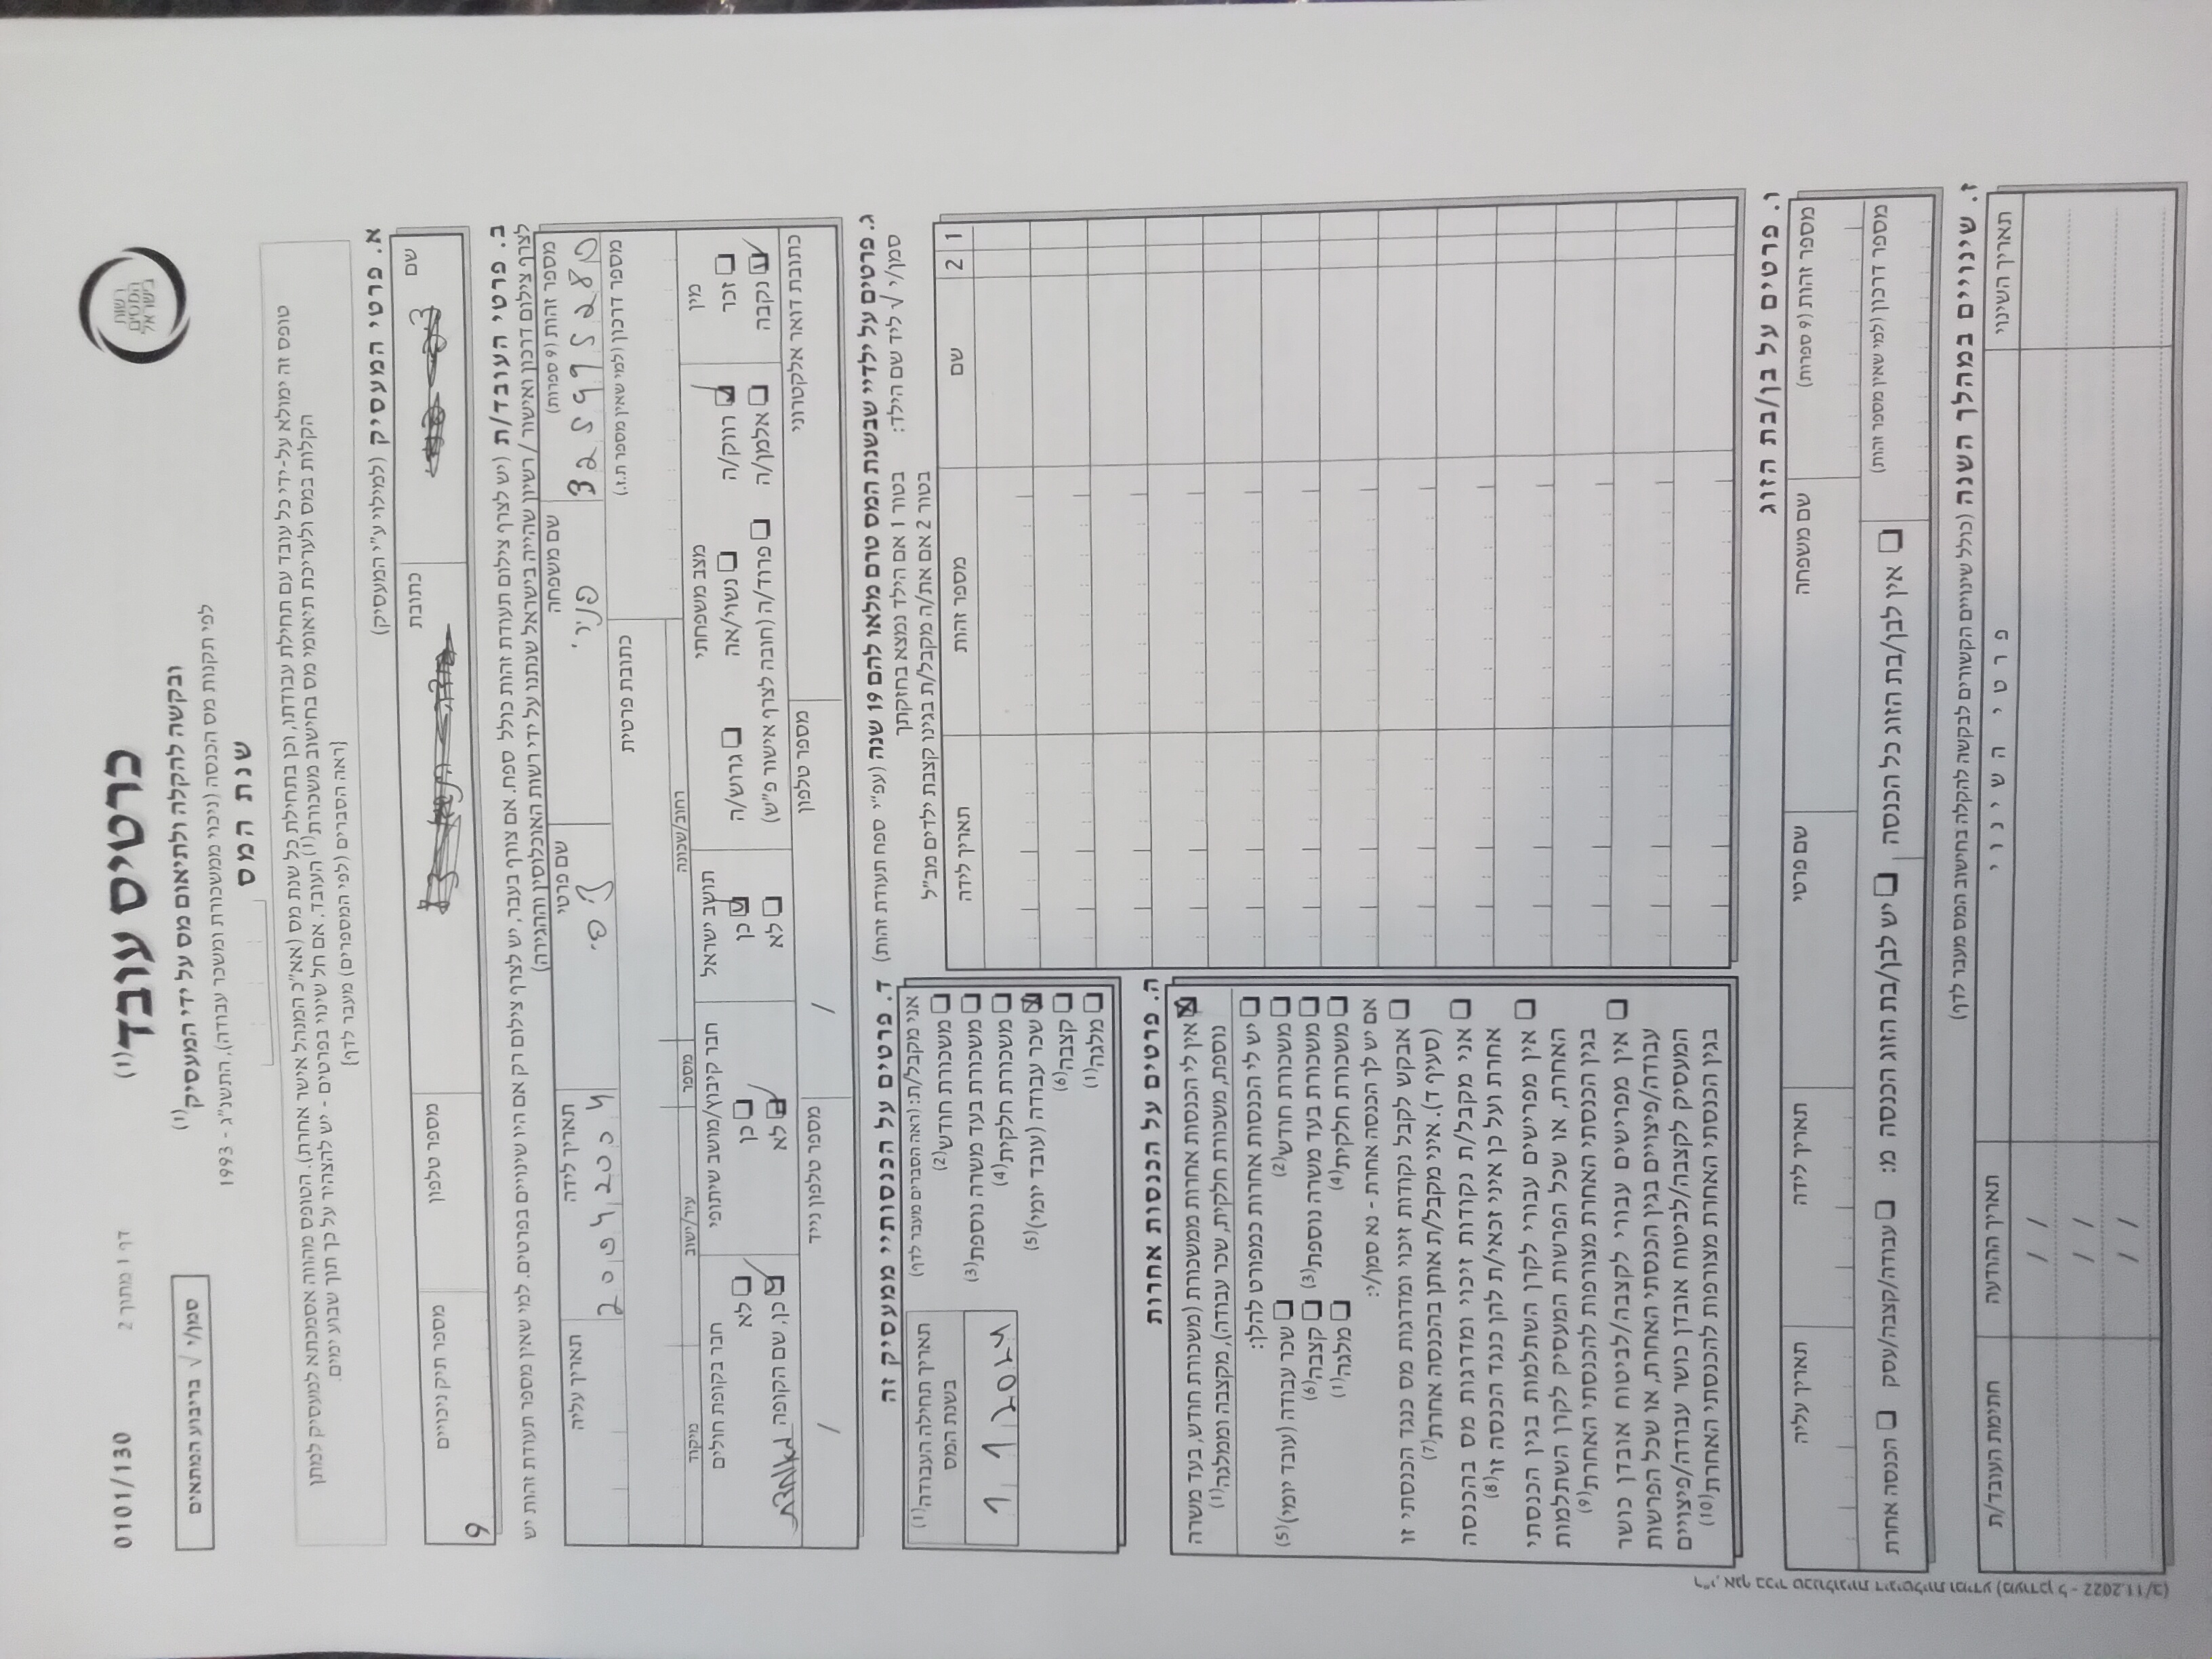 רשות
המסים
בישראל
כרטיס עובד(1)
דף 1 מתוך 2
0101/130
ובקשה להקלה ולתיאום מס על ידי המעסיק(1)
סמן/י √ בריבוע המתאים
לפי תקנות מס הכנסה (ניכוי ממשכורת ומשכר עבודה), התשנ"ג - 1993
שנת המס
טופס זה ימולא על-ידי כל עובד עם תחילת עבודתו, וכן בתחילת כל שנת מס (אא"כ המנהל אישר אחרת). הטופס מהווה אסמכתא למעסיק למתן
הקלות במס ולעריכת תיאומי מס בחישוב משכורת(1) העובד. אם חל שינוי בפרטים - יש להצהיר על כך תוך שבוע ימים.
{ראה הסברים (לפי המספרים) מעבר לדף}
א. פרטי המעסיק (למילוי ע"י המעסיק)
שם כתובת מספר טלפון מספר תיק ניכויים
9
ב. פרטי העובד/ת (יש לצרף צילום תעודת זהות כולל ספח. אם צורף בעבר, יש לצרף צילום רק אם היו שינויים בפרטים. למי שאין מספר תעודת זהות יש
לצרף צילום דרכון ואישור / רשיון שהייה בישראל שנתנו על ידי רשות האוכלוסין וההגירה)
מספר זהות (9 ספרות) שם משפחה שם פרטי תאריך לידה תאריך עליה
325995280 פנירי ציפי 20042004
מספר דרכון (למי שאין מספר ת.ז.) כתובת פרטית
רחוב/שכונה מספר עיר/ישוב מיקוד
מין מצב משפחתי תושב ישראל חבר קיבוץ/מושב שיתופי חבר בקופת חולים
זכר רווק/ה נשוי/אה גרוש/ה כן כן לא
נקבה אלמן/ה פרוד/ה (חובה לצרף אישור פ"ש) לא לא כן, שם הקופה מאוחדת
כתובת דואר אלקטרוני מספר טלפון / מספר טלפון נייד /
ג. פרטים על ילדיי שבשנת המס טרם מלאו להם 19 שנה (עפ"י ספח תעודת זהות)
סמן/י √ ליד שם הילד: בטור 1 אם הילד נמצא בחזקתך
בטור 2 אם את/ה מקבל/ת בגינו קצבת ילדים מב"ל
1 2 שם מספר זהות תאריך לידה
ד. פרטים על הכנסותיי ממעסיק זה
אני מקבל/ת: (ראה הסברים מעבר לדף)
משכורת חודש(2)
משכורת בעד משרה נוספת(3)
משכורת חלקית(4)
שכר עבודה (עובד יומי)(5)
קצבה(6)
מלגה(1)
תאריך תחילת העבודה(1)
בשנת המס
1 1 2024
ה. פרטים על הכנסות אחרות
אין לי הכנסות אחרות ממשכורת (משכורת חודש, בעד משרה
נוספת, משכורת חלקית, שכר עבודה), מקצבה וממלגה(1)
יש לי הכנסות אחרות כמפורט להלן:
משכורת חודש(2) שכר עבודה (עובד יומי)(5)
משכורת בעד משרה נוספת(3) קצבה(6)
משכורת חלקית(4) מלגה(1)
אם יש לך הכנסה אחרת - נא סמן/י:
אבקש לקבל נקודות זיכוי ומדרגות מס כנגד הכנסתי זו
(סעיף ד). איני מקבל/ת אותן בהכנסה אחרת(7)
אני מקבל/ת נקודות זיכוי ומדרגות מס בהכנסה
אחרת ועל כן איני זכאי/ת להן כנגד הכנסה זו(8)
אין מפרישים עבורי לקרן השתלמות בגין הכנסתי
האחרת, או שכל הפרשות המעסיק לקרן השתלמות
בגין הכנסתי האחרת מצורפות להכנסתי האחרת(9)
אין מפרישים עבורי לקצבה/לביטוח אובדן כושר
עבודה/פיצויים בגין הכנסתי האחרת, או שכל הפרשות
המעסיק לקצבה/לביטוח אובדן כושר עבודה/פיצויים
בגין הכנסתי האחרת מצורפות להכנסתי האחרת(10)
ו. פרטים על בן/בת הזוג
מספר זהות (9 ספרות) שם משפחה שם פרטי תאריך לידה תאריך עליה
מספר דרכון (למי שאין מספר זהות) אין לבן/בת הזוג כל הכנסה יש לבן/בת הזוג הכנסה מ: עבודה/קצבה/עסק הכנסה אחרת
ז. שינויים במהלך השנה (כולל שינויים הקשורים לבקשה להקלה בחישוב המס מעבר לדף)
תאריך השינוי פרטי השינוי תאריך ההודעה חתימת העובד/ת
/ /
/ /
/ /
אגף בכיר טכנולוגיות דיגיטליות ומידע (מעודכן ל - 11.2022/ב)